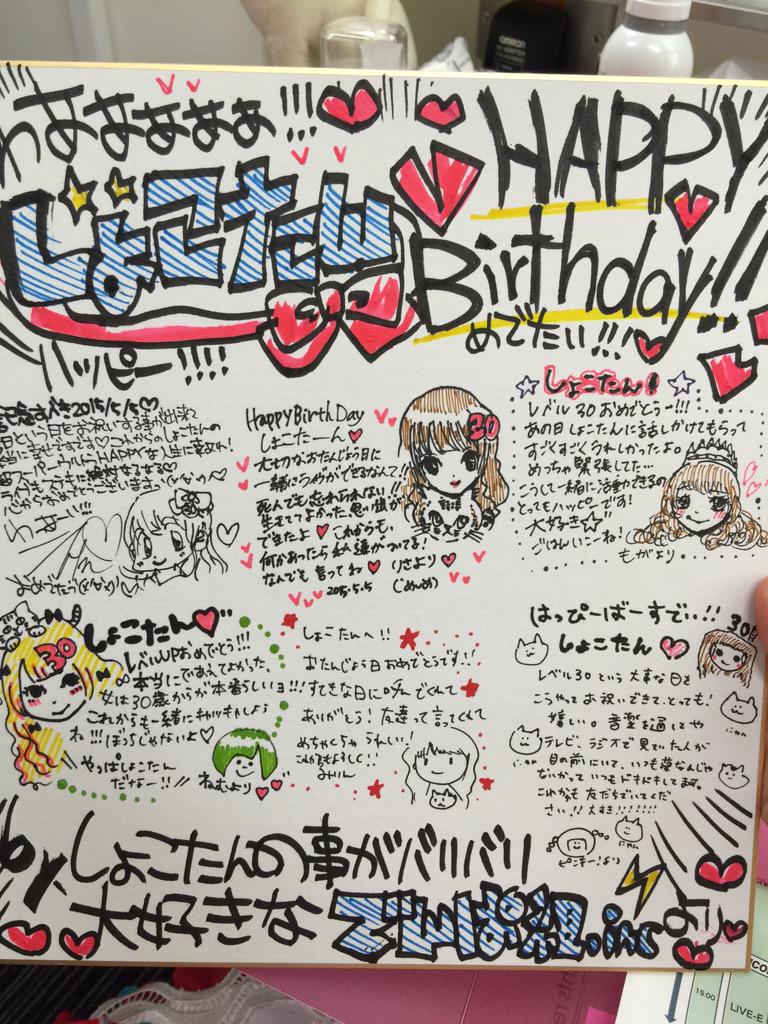 わああああぁぁ!!!
HAPPY
じょこたん
Birthday!!
めでたい!!!
ハッピー!!!!
2015/5/5♡
日という日をお祝いする事が出来て
幸せです♡これからのしょこたんの
HAPPYな人生に
おめでとうございます
わぁーい!!
おめでとう
HappyBirthDay
しょこたーん♥
大切なおたんじょう日に
一緒にライブができるなんて!
死んでも忘れられない!
生きててよかった思い出が
できたよ♥これからも、
何かあったら私達がついてる!
なんでも言ってね♥りさより♥
2015.5.5
☆しょこたん!☆
レベル30おめでとう〜!!!
あの日しょこたんに話しかけてもらって
すごくすごくうれしかったよ。
めっちゃ緊張してた…
こうして一緒に活動できるの
とってもハッピーです!
大好き☆
ごはんいこーね!
もがより
30
しょこたん♥
レベルUPおめでとう!!!
本当にであえてよかった、
女は30歳からが本番らしいョ!!!
これからも一緒にキャッキャしよう
ね!!!ぼっちじゃないよ♥
やっぱしょこたん
だなー!!
ねむより♥♥
30
しょこたんへ!!
おたんじょう日おめでとうです!!
すてきな日に呼んでくれて
ありがとう!友達って言ってくれて
めちゃくちゃうれしい!
これからもよろしく!!
みりん
はっぴーばーすでい..!!
30
しょこたん♥
レベル30という大事な日を
こうやってお祝いできて、とっても!
嬉しい。音楽を通してや
テレビ、ラジオで見ていた人が
目の前にいて、いつも夢なんじゃ
ないかっていつもドキドキしてます。
これからも友だちでいてくだ
さい!!大すき!!!!!!!
にゃん
にゃ
にゃん
にゃ
にゃん
ピンキー!より
by しょこたんの事がバリバリ
大好きなでんぱ組.incより
omron
15:00
LIVE-E